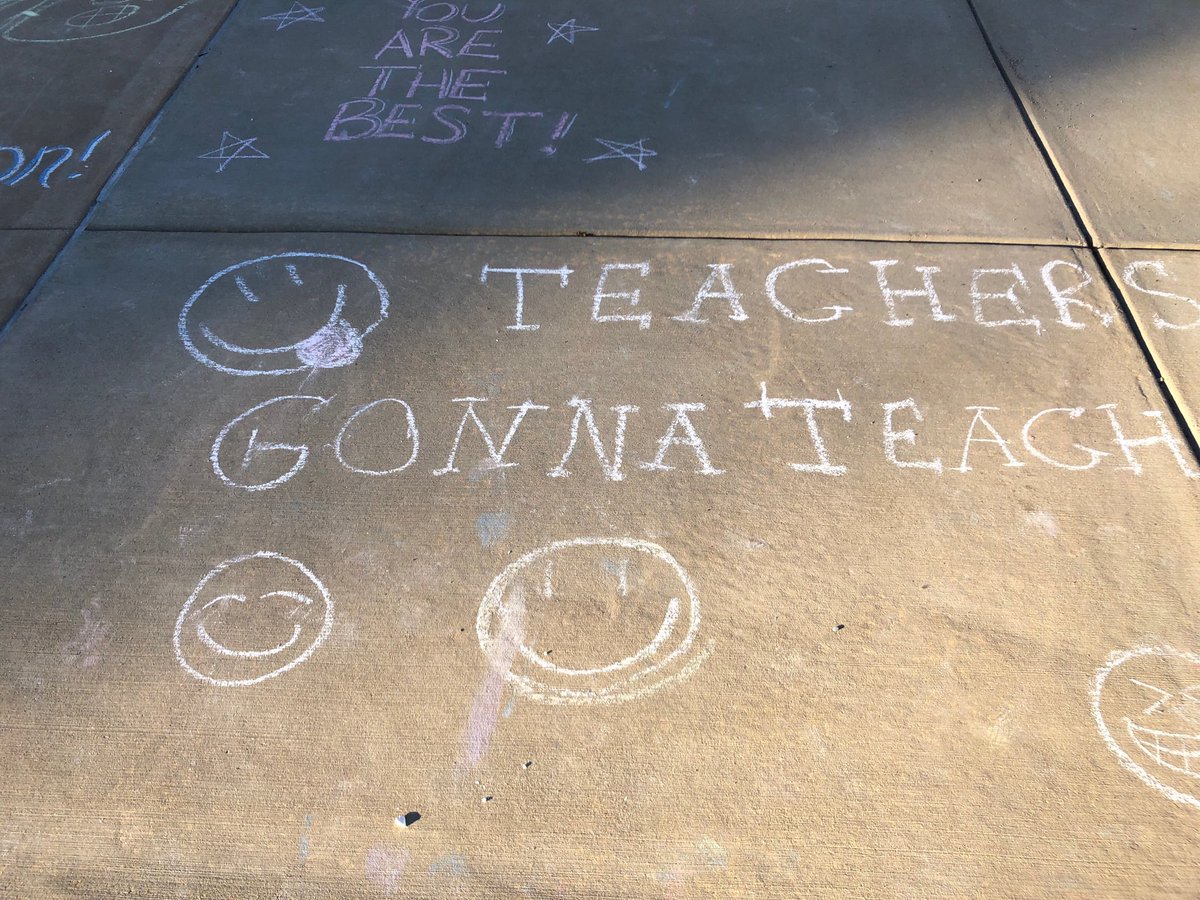 YOU
ARE
THE
BEST!
TEACHERS
GONNA TEACH